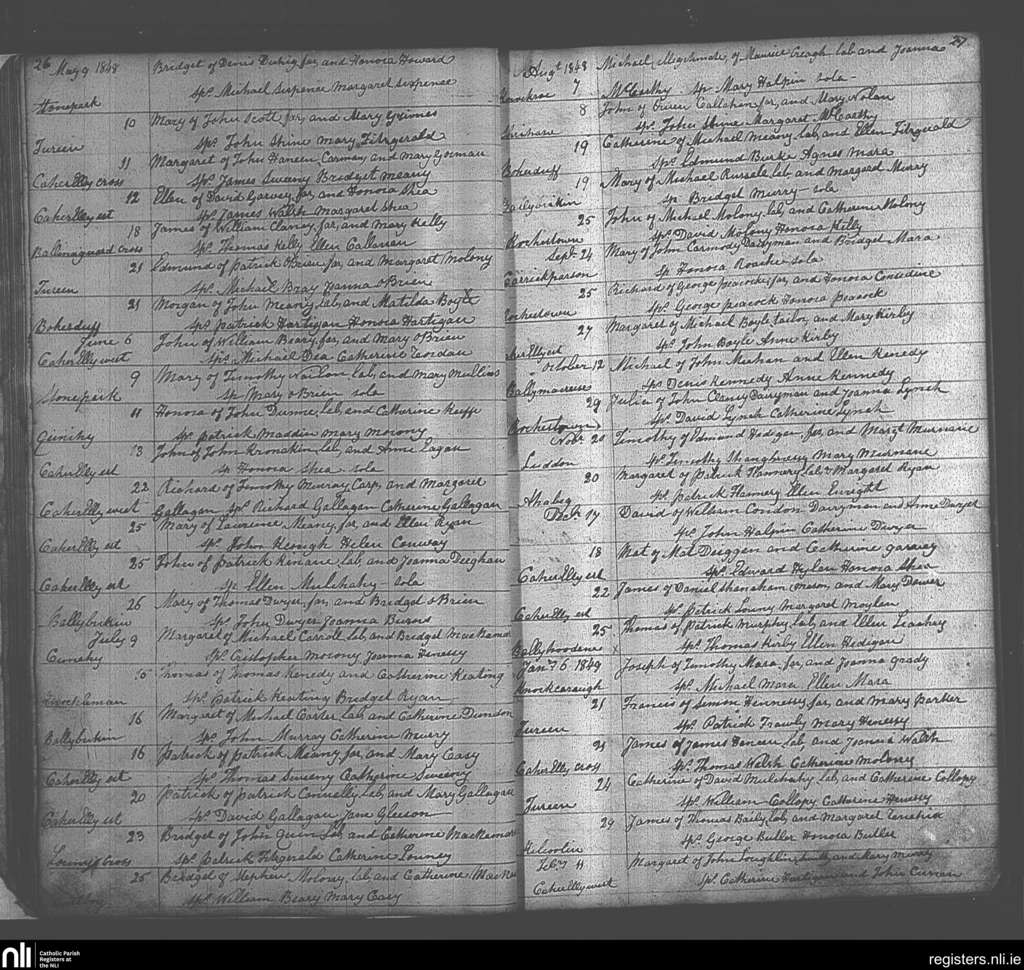 26 May 9 1848 Bridget of Denis Duhig, far, and Honora Howard
Stonepark Sps. Michael Sixpense Margaret Sixpense
10 Mary of John Scott far, and Mary Grimes
Tureen Sps. John Shine Mary Fitzgerald
11 Margaret of John Haneen, Carman, and Mary Gorman
Caherelly cross Sps. James Sweeny Bridget meany
12 Ellen of David Garvey, far, and Honora Shea
Caherelly est Sps. James Walsh Margaret Shea
18 James of William Clancy, far, and Mary Kelly
cross Sps. Thomas Kelly Ellen Callanan
21 Edmund of Patrick OBrien far, and Margaret Molony
Tureen Sps. Michael Bray Joanna OBrien
21 Morgan of John Meany, lab, and Matilda Boyle
Boherduff Sps. Patrick Hartigan Honora Hartigan
June 6 John of William Beary, far, and Mary OBrien
Caherelly west Sps. Michael Dea Catherine
9 Mary of Timothy lab, and Mary Mullins
Stonepark Sp. Mary OBrien sola
11 Honora of John Dunne, lab, and Catherine Keeffe
Sps. Patrick Madden Mary Morony
13 John of John lab, and Anne Eagan
Caherelly est Sp. Honora Shea sola
22 Richard of Timothy Murray, Carp, and Margaret
Caherelly west Gallagan Sps. Richard Gallagan Catherine Gallagan
25 Mary of Laurence Meaney, far, and Ellen Ryan
Caherelly est Sps. John Keough Helen Conway
25 John of Patrick Kinane, lab, and Joanna Deeghan
Caherelly est Sp. Ellen Mulchahy - sola
26 Mary of Thomas Dwyer, far, and Bridget OBrien
Ballybrikin Sps. John Dwyer Joanna Burns
July 9 Margaret of Michael Carroll, lab, and Bridget MacNamar
Sps. Cristopher Morony Joanna Henessy
15 Thomas of Thomas Kenedy and Catherine Keating
Sps. Patrick Keating Bridget Ryan
16 Margaret of Michael Carter, lab, and Catherine Dundon
Ballybrikin Sps. John Murray Catherine
16 Patrick of Patrick Meany, far, and Mary Casy
Caherelly est Sps. Thomas Sweeny Catherine Sweeny
20 Patrick of Patrick Connelly, lab, and Mary Gallagan
Caherelly est Sps. David Gallagan Jane Gleeson
23 Bridget of John Quin, lab, and Catherine MacNamar
cross Sps. Patrick Fitzgerald Catherine
25 Bridget of Stephen Molony, lab, and Catherine
Sps. William Beary Mary Casy
27
Augt. 1848 Michael, of Maurice Creagh, lab and Joanna
7 McCarthy Sp. Mary Halpin sola -
8 John of Owen Callahan, far, and Mary Nolan
Sps. John Shine Margaret McCarthy
19 Catherine of Michael Meany, lab, and Ellen Fitzgerald
Boherduff Sps. Edmund Burke Agnes Mara
19 Mary of Michael Russele, lab, and Margaret Murry
Sp. Bridget Murry - sola
25 John of Michael Molony, lab, and Catherine Molony
Rochestown Sps. David Molony Honora Kelly
Sept. 24 Mary of John Carmody Dairyman and Bridget Mara
Carrickperson Sp. Honora Roache - sola
25 Richard of George Peacocke, far, and Honora Considine
Rochestown Sps. George Peacock Honora Peacock
27 Margaret of Michael Boyle, tailor, and Mary Kirby
Sps. John Boyle Anne Kirby
October 12 Michael of John Meehan and Ellen Kenedy
Sps. Denis Kennedy Anne Kennedy
29 Julia of John Clancy Dairyman and Joanna Lynch
Rochestown Sps. David Lynch Catherine Lynch
Novr. 20 Timothy of Edmund Hedigan, far, and Margt
Luddon Sps. Timothy Shaughnessy Mary
20 Margaret of Patrick Flannery, lab, & Margaret Ryan
Ahabeg Sps. Patrick Flannery Ellen Enright
Decb. 17 David of William Condon Dairyman and Anne Dwyer
Sps. John Halpin Catherine Dwyer
18 Mat of Mat Duggen and Catherine garvey
Caherelly est Sps. Edward Hylan Honora Shea
22 James of Daniel Shanahan, mason, and Mary Dwner
Caherelly est Sps. Patrick Louny Margaret Moylan
25 Thomas of Patrick Murphy, lab, and Ellen Leachey
Sps. Thomas Kirby Ellen Hedigan
Janry. 6 1849 Joseph of Timothy Mara, far, and Joanna grady
Knockcarough Sps. Michael Mara Ellen Mara
21 Francis of Simon Hennessy, far, and Mary Parker
Tureen Sps. Patrick Mary Henessy
21 James of James Haneen, lab, and Joanna Walsh
Caherelly cross Sps. Thomas Walsh Catherine Molony
24 Catherine of David Mulchahy, lab, and Catherine Collopy
Tureen Sps. William Collopy Catherine Henessy
29 James of Thomas Baily, lab, and Margaret
Kilcoolin Sps. George Butler Honora Butler
Feby. 11 Margaret of John Loughlin, and Mary
Caherelly west Sps. Catherine Hartigan and John Curran
nli Catholic Parish
Registers at
the NLI
registers.nli.ie